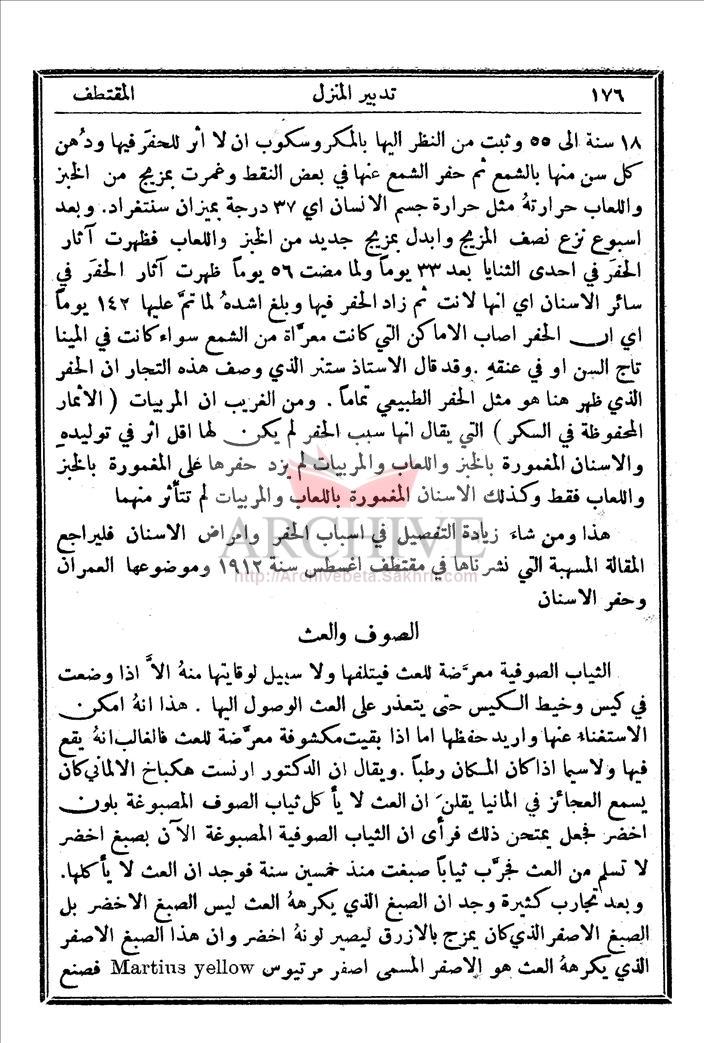 ١٧٦ تدبير المنزل المقتطف
١٨ سنة الى ٥٥ وثبت من النظر اليها بالمكروسكوب ان لا اثر للحفَر فيها ودُهن
كل سن منها بالشمع ثم حفر الشمع عنها في بعض النقط وغمرت بمزيج من الخبز
واللعاب حرارتهُ مثل حرارة جسم الانسان اي ٣٧ درجة بميزان سنتغراد. وبعد
اسبوع نزع نصف المزيج وابدل بمزيج جديد من الخبز واللعاب فظهرت آثار
الحفَر في احدى الثنايا بعد ٣٣ يوماً ولما مضت ٥٦ يوماً ظهرت آثار الحفَر في
سائر الاسنان اي انها لانت ثم زاد الحفر فيها وبلغ اشدهُ لما تمَّ عليها ١٤٢ يوماً
اي ان الحفر اصاب الاماكن التي كانت معرَّاة من الشمع سواء كانت في المينا
تاج السن او في عنقهِ. وقد قال الاستاذ ستنر الذي وصف هذه التجار ان الحفر
الذي ظهر هنا هو مثل الحفر الطبيعي تماماً. ومن الغريب ان المربيات (الأثمار
المحفوظة في السكر) التي يقال انها سبب الحفر لم يكن لها اقل اثر في توليدهِ
والاسنان المغمورة بالخبز واللعاب والمربيات لم يزد حفرها على المغمورة بالخبز
واللعاب فقط وكذلك الاسنان المغمورة باللعاب والمربيات لم تتأثر منهما
هذا ومن شاء زيادة التفصيل في اسباب الحفر وامراض الاسنان فليراجع
المقالة المسهبة التي نشرناها في مقتطف اغسطس سنة ١٩١٢ وموضوعها العمران
وحفر الاسنان
ARCHIVE
http://Archivebeta.Sakhrit.com
الصوف والعث
الثياب الصوفية معرَّضة للعث فيتلفها ولا سبيل لوقايتها منهُ الاَّ اذا وضعت
في كيس وخيط الكيس حتى يتعذر على العث الوصول اليها. هذا انهُ امكن
الاستغناء عنها واريد حفظها اما اذا بقيت مكشوفة معرَّضة للعث فالغالب انهُ يقع
فيها ولاسيما اذا كان المكان رطباً. ويقال ان الدكتور ارنست هكباخ الالماني كان
يسمع العجائز في المانيا يقلنَ ان العث لا يأكل ثياب الصوف المصبوغة بلون
اخضر فجعل يمتحن ذلك فرأى ان الثياب الصوفية المصبوغة الآن بصبغ اخضر
لا تسلم من العث فجرَّب ثياباً صبغت منذ خمسين سنة فوجد ان العث لا يأكلها.
وبعد تجارب كثيرة وجد ان الصبغ الذي يكرههُ العث ليس الصبغ الاخضر بل
الصبغ الاصفر الذي كان يمزج بالازرق ليصير لونهُ اخضر وان هذا الصبغ الاصفر
الذي يكرههُ العث هو الاصفر المسمى اصفر مرتيوس Martius yellow فصنع